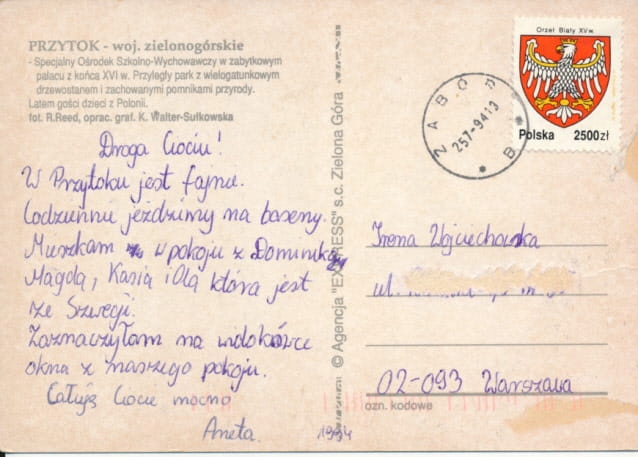 PRZYTOK - woj. zielonogórskie
- Specjalny Ośrodek Szkolno-Wychowawczy w zabytkowym
pałacu z końca XVI w. Przyległy park z wielogatunkowym
drzewostanem i zachowanymi pomnikami przyrody.
Latem gości dzieci z Polonii.
fot. R.Reed, oprac. graf. K. Walter-Sułkowska
Droga Ciociu!
W Przytoku jest fajnie.
Codziennie jeździmy na baseny.
Mieszkam w pokoju z Dominiką
Magdą, Kasią i Olą która jest
ze Szwecji.
Zaznaczyłam na widokówce
okna z naszego pokoju.
Całuję Ciocię mocno
Aneta.
1994
© Agencja "EXPRESS" s.c. Zielona Góra
Orzeł Biały XV w.
Polska 2500zł
ZABÓR
257-9413
B
Irena Wojciechowska
ul.
02-093 Warszawa
ozn. kodowe